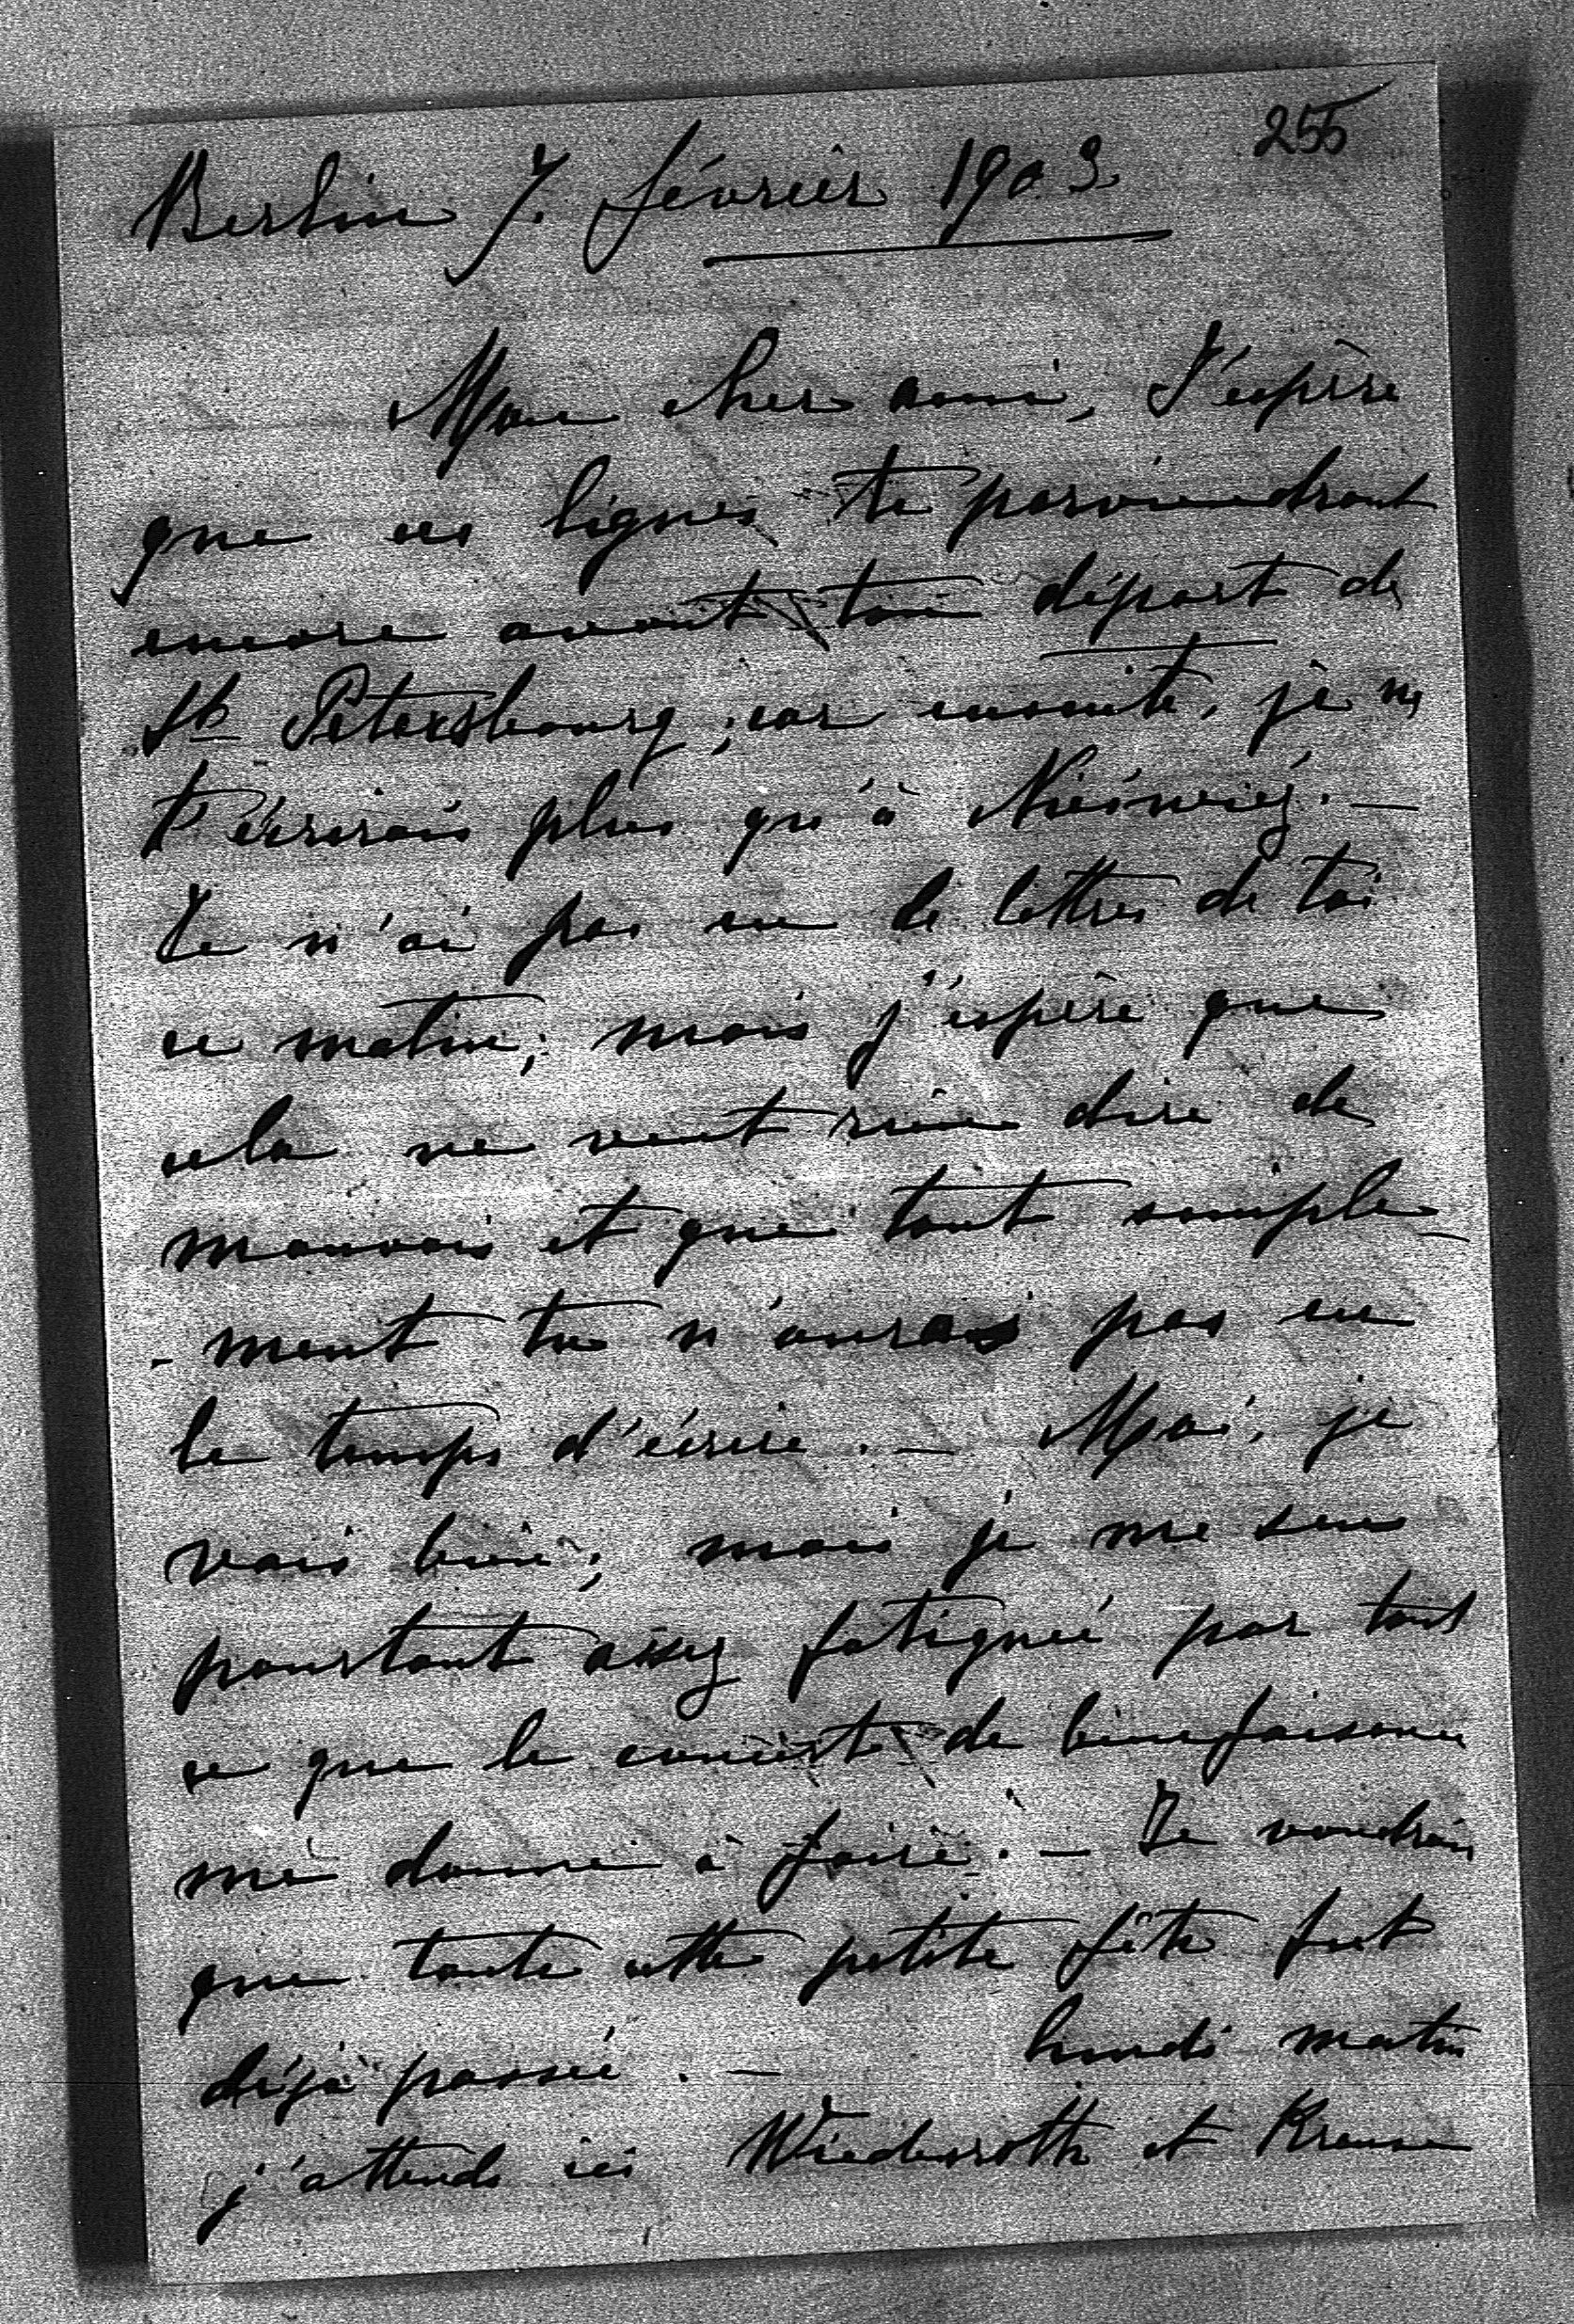 255
Berlin 7. février 1903.
Mon cher ami, J'espère
que ces lignes te parviendront
encore avant ton départ de
St Pétersbourg; car ensuite, je ne
t'écrirais plus qu'à Niéswiéj. —
Je n'ai pas eu de lettres de toi
ce matin; mais j'espère que
cela ne veut rien dire de
mauvais et que tout simple-
-ment tu n'auras pas eu
le temps d'écrire. — Moi, je
vais bien; mais je me sens
pourtant assez fatiguée par tout
ce que le concert de bienfaisance
me donne à faire. — Je voudrais
que toute cette petite fête fut
déjà passée. — Lundi matin
j'attends ici Wiederroth et Krause